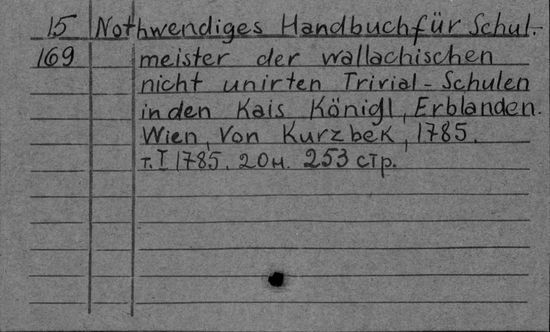 15 Nothwendiges Handbuch für Schul.-
169 meister der wallachischen
nicht unirten Trivial-Schulen
in den Kais Königl, Erblanden.
Wien, Von Kurzbek, 1785.
т. I 1785. 20н. 253 стр.